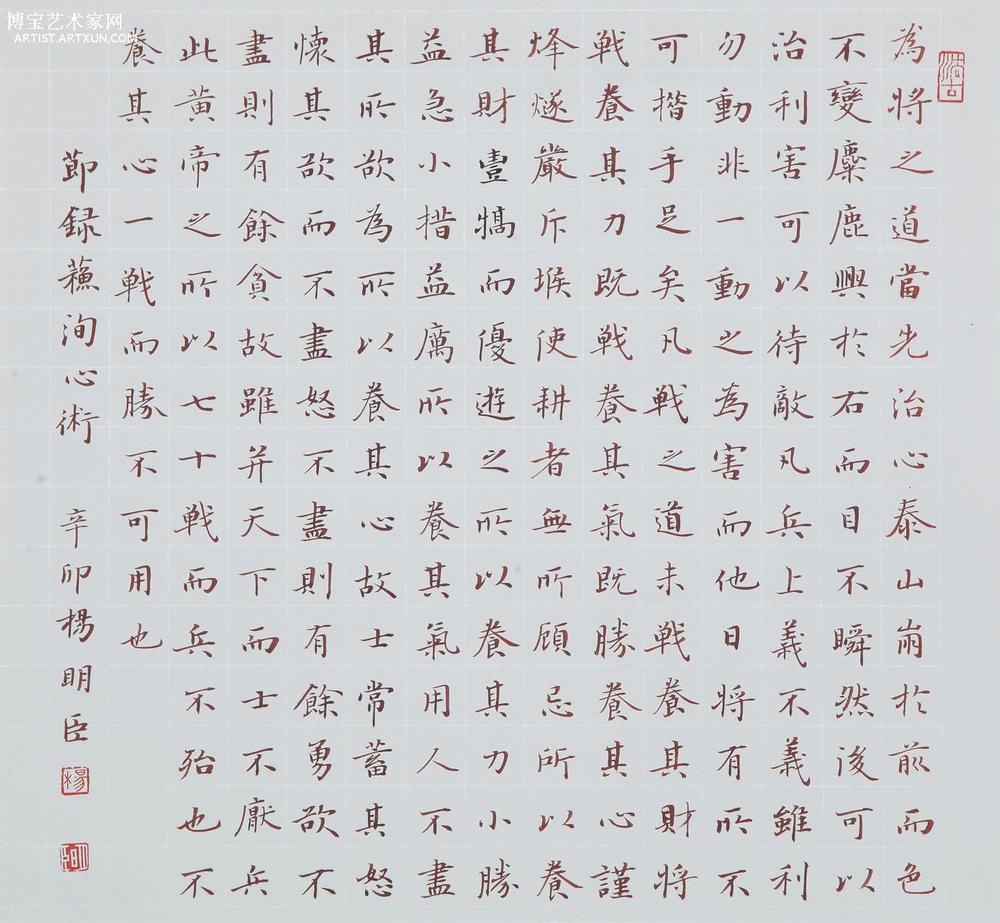 博宝艺术家网
ARTIST.ARTXUN.COM
法古
為將之道當先治心泰山崩於前而色
不變麋鹿興於右而目不瞬然後可以
治利害可以待敵凡兵上義不義雖利
勿動非一動之為害而他日將有所不
可揩手足矣凡戦之道未戦養其財將
戦養其力既戦養其氣既勝養其心謹
烽燧嚴斥堠使耕者無所顧忌所以養
其財壹犒而優遊之所以養其力小勝
益急小措益厲所以養其氣用人不盡
其所欲為所以養其心故士常蓄其怒
懷其欲而不盡怒不盡則有餘勇欲不
盡則有餘貪故雖并天下而士不厭兵
此黄帝之所以七十戦而兵不殆也不
養其心一戦而勝不可用也
節録蘇洵心術 辛卯楊明臣
楊